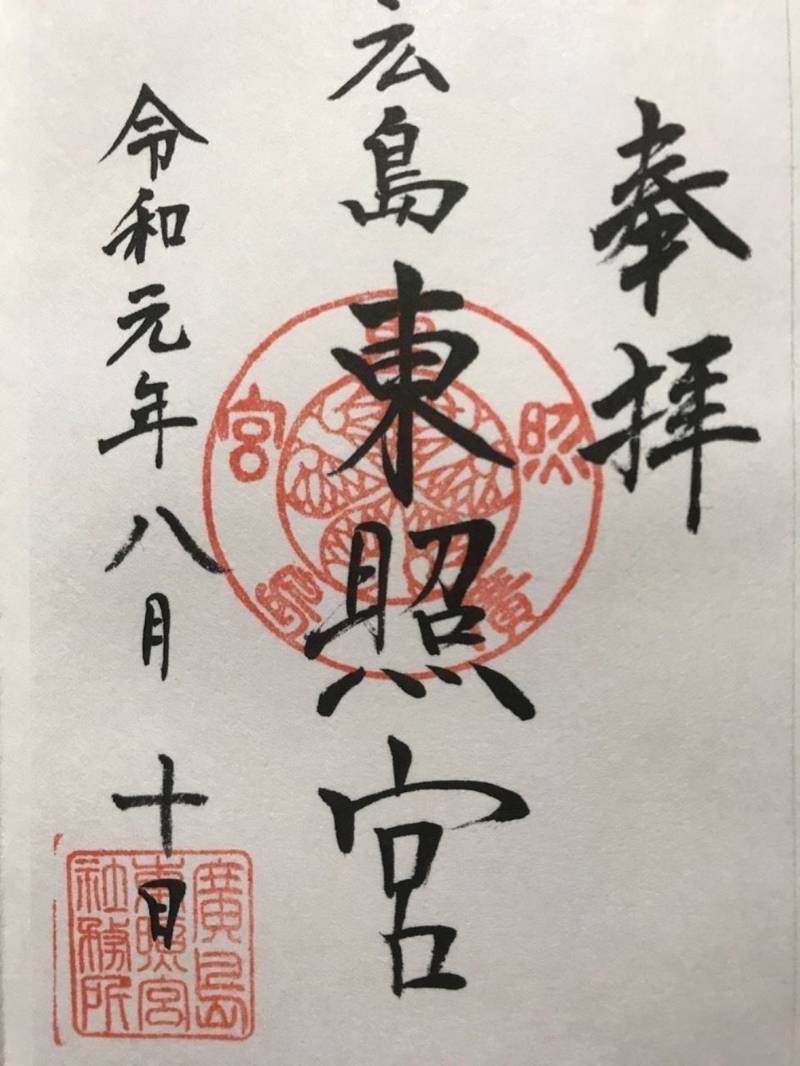 奉拝
広島東照宮
令和元年八月十日
廣島
東照宮
社務所